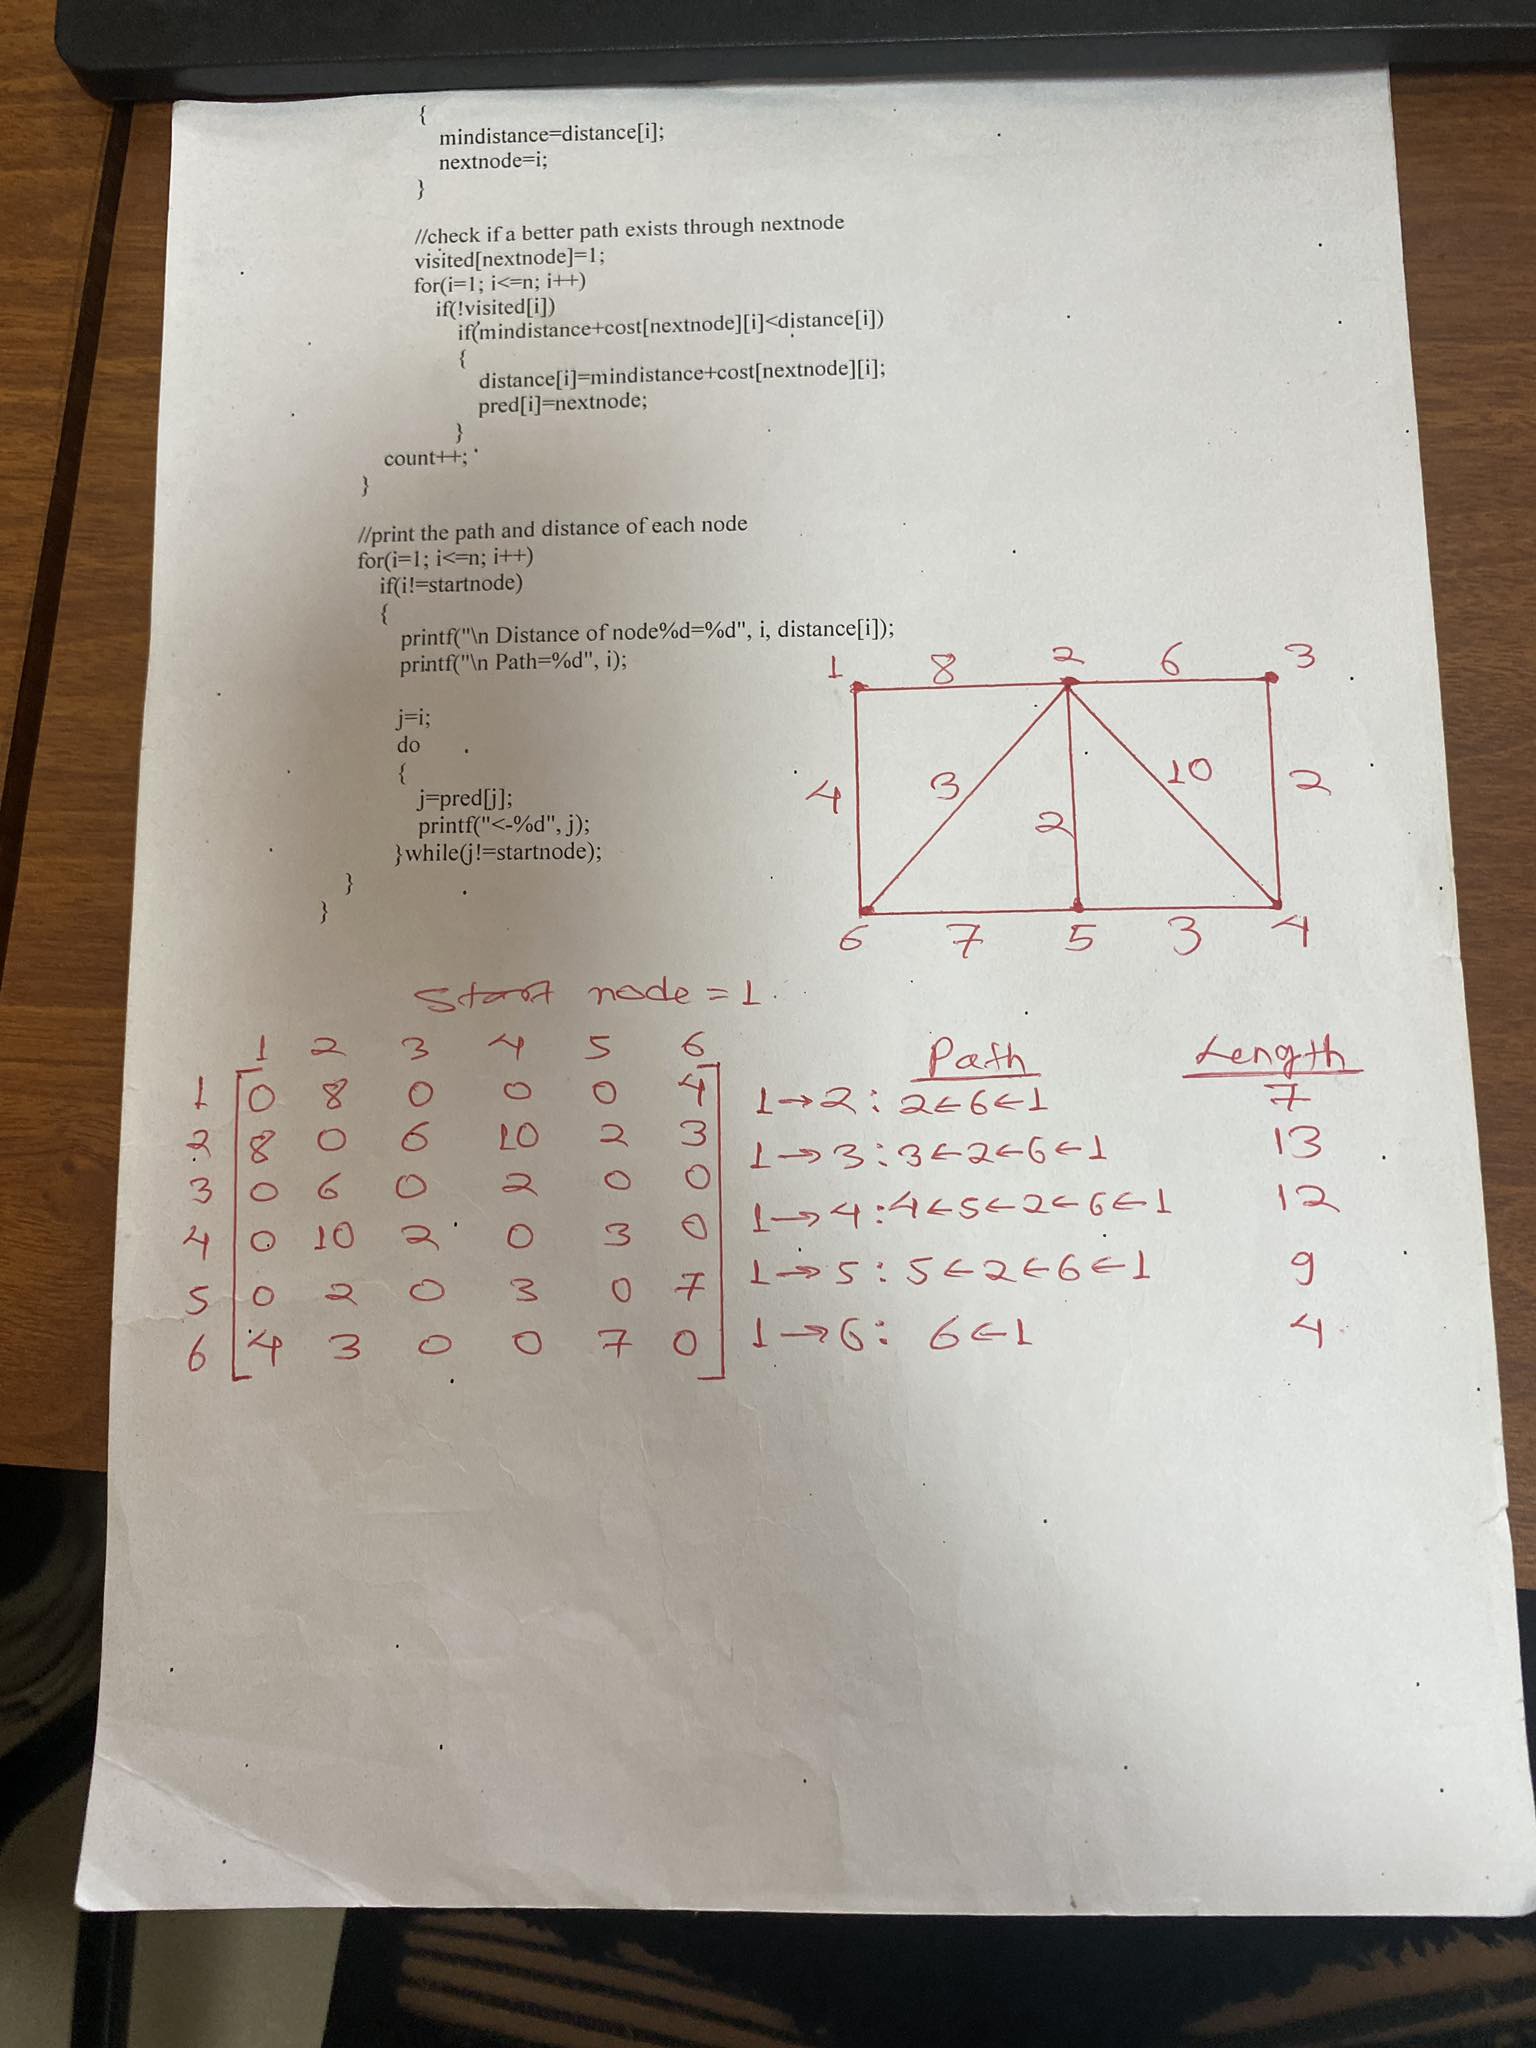 {
mindistance=distance[i];
nextnode=i;
}
//check if a better path exists through nextnode
visited[nextnode]=1;
for(i=1; i<=n; i++)
if(!visited[i])
if(mindistance+cost[nextnode][i]<distance[i])
{
distance[i]=mindistance+cost[nextnode][i];
pred[i]=nextnode;
}
count++;
}
//print the path and distance of each node
for(i=1; i<=n; i++)
if(i!=startnode)
{
printf("\n Distance of node%d=%d", i, distance[i]);
printf("\n Path=%d", i);
j=i;
do
{
j=pred[j];
printf("<-%d", j);
}while(j!=startnode);
}
}
1 8 2 6 3
4 3 2 10 2
6 7 5 3 4
Start node = 1.
1 2 3 4 5 6
1 0 8 0 0 0 4
2 8 0 6 10 2 3
3 0 6 0 2 0 0
4 0 10 2 0 3 0
5 0 2 0 3 0 7
6 4 3 0 0 7 0
Path Length
1→2: 2←6←1 7
1→3: 3←2←6←1 13
1→4: 4←5←2←6←1 12
1→5: 5←2←6←1 9
1→6: 6←1 4